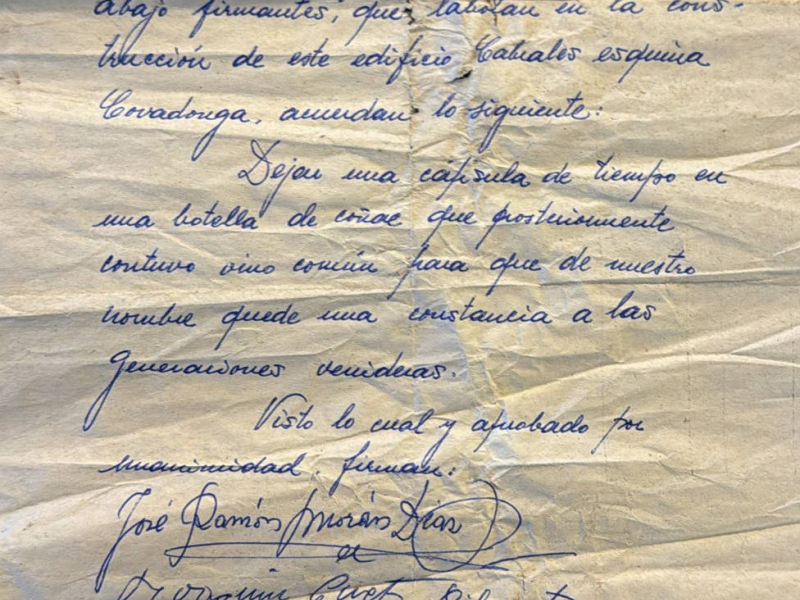 abajo firmantes, que laboran en la cons-
trucción de este edificio Cabrales esquina
Covadonga, acuerdan lo siguiente:
Dejar una cápsula de tiempo en
una botella de coñac que posteriormente
contuvo vino común para que de nuestro
nombre quede una constancia a las
generaciones venideras.
Visto lo cual y aprobado por
unanimidad, firman:
José Ramón Morán Díaz